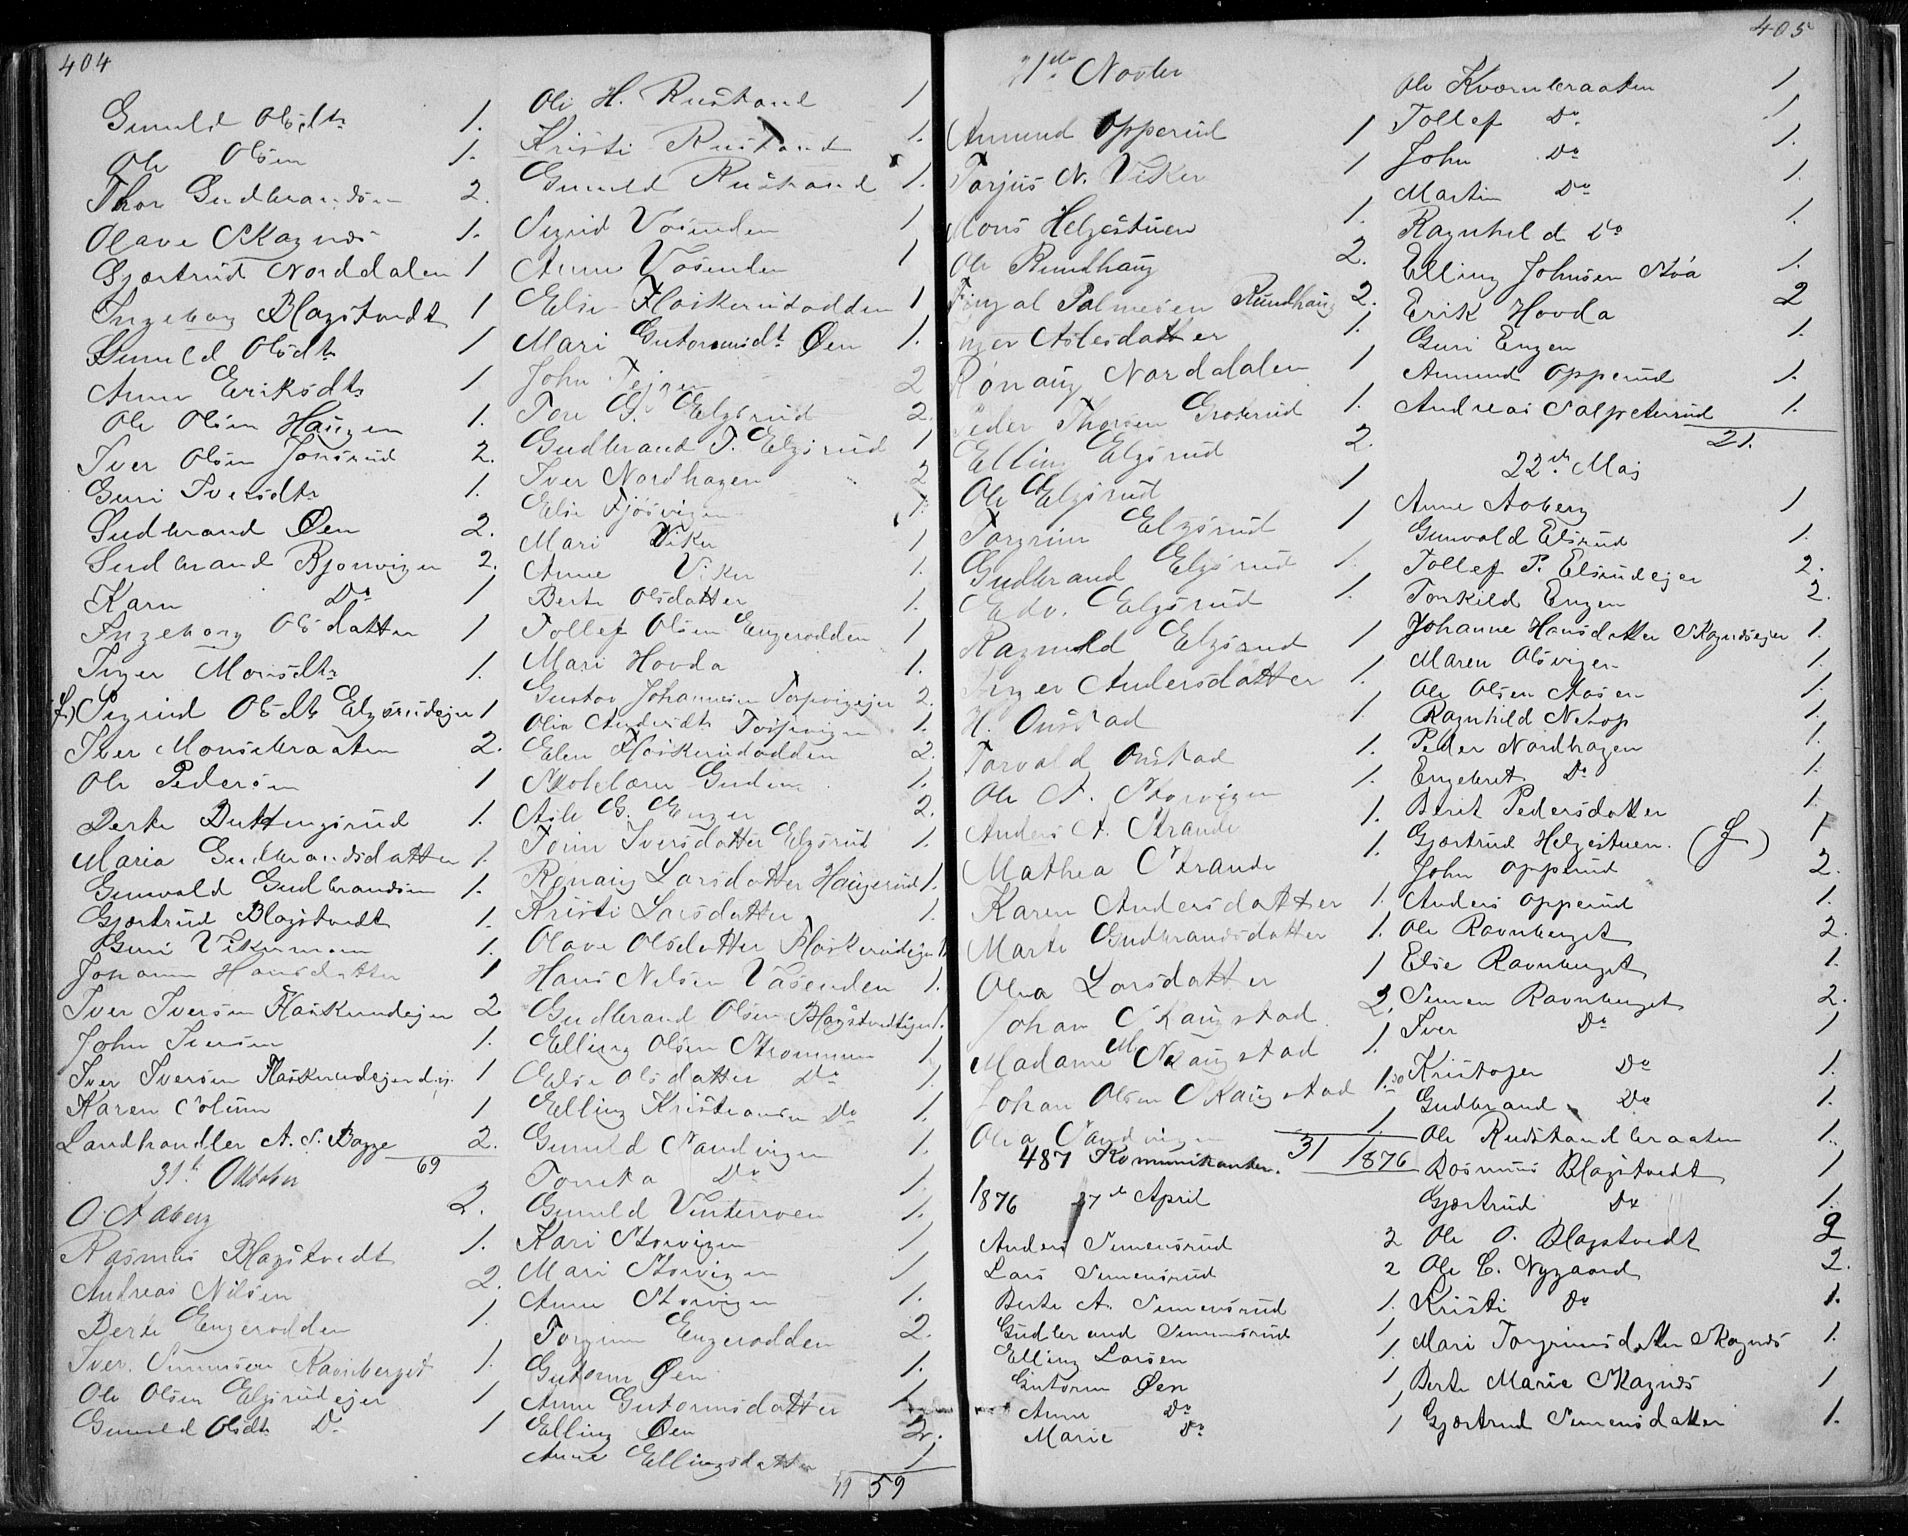 404
Gunild Olsdtr 1.
Ole Olsen 1.
Thor Gudbrandsen 2.
Olave Skagnæs 1.
Gjærtrud Norddalen 1
Ingeborg Blagstvedt 1
Gunild Olsdtr 1
Anne Eriksdtr 1
Ole Olsen Haugen 1.
Iver Olsen Jonsrud 2.
Guri Iversdtr 1.
Gudbrand Øen 2.
Gudbrand Bjonvigen 2.
Karn Do 1
Ingeborg Olsdatter 1
Inger Monsdtr 1.
Sigrid Olsdtr Elgsrudejer 1
Iver Monsebraaten 2.
Ole Pedersen 1
Berte Duttengsrud 1.
Maria Gudbrandsdatter 1.
Gunvald Gudbrandsen 1.
Gjærtrud Blagstvedt 1.
Guri Vikermoen 1.
Johanne Hansdatter 1
Iver Iversen Flaskerudejer 2
John Iversen 1.
Iver Iversen Flaskerudejer d.y. 1
Karen Colum 1
Landhandler A. S. Bagge 2.
69
31te Oktober
O. Aaberg 2.
Rasmus Blagstvedt 1.
Andreas Nilsen 2.
Berte Engerodden 1
Iver Simensen Ravnberget 1.
Ole Olsen Elgsrudejer 1
Gunild Olsdtr Do 1
Ole H. Rustand 1
Kristi Rustand 1.
Gunild Rustand 1.
Sigrid Vasenden 1
Anne Vasenden 1
Else Flaskerudodden 1
Mari Gutormsdtr Øen 1.
John Tejgen 2
Tore G. Elgsrud 2.
Gudbrand T. Elgsrud 1
Iver Nordhagen 2
Else Fjøsvigen 1.
Mari Viker 1
Anne Viker 1.
Berte Olsdatter 1.
Tollef Olsen Engerodden 1
Mari Hovda 1.
Gustav Johannesen Torpvigejer 2.
Olia Andersdtr Torpevigen 1.
Elen Flaskerudodden 2.
Skolelærer Gudem 1.
Asle G. Enger 2.
Tonne Iversdatter Elgsrud 1.
Rønaug Larsdatter Haugerud 1.
Kristi Larsdatter 1.
Olave Olsdatter Flaskerudejer 1.
Hans Nilsen Vasenden 1.
Gudbrand Olsen Blagstvedtejer 1.
Elling Olsen Strømmen 1
Else Olsdatter Do 1.
Elling Kristiansen Do 1.
Gunild Sandvigen 1.
Toneta Do 1.
Gunild Vinterroen 1.
Kari Storvigen 1
Mari Storvigen 1
Anne Storvigen 1.
Torgrim Engerodden 2.
Gutorm Øen 1.
Anne Gutormsdatter 1
Elling Øen 2.
Anne Ellingsdatter 1
59
405
21de Novbr
Amund Opperud 1
Torjus N. Viker 1
Mons Helgestuen 1.
Ole Rundhaug 2.
Tingal Palmesen Rundhaug 2.
Inger Aslesdatter 1.
Rønaug Norddalen 1
Peder Thoresen Groterud 1.
Elling Elgsrud 2.
Ole Elgsrud 1
Torgrim Elgsrud 1
Gudbrand Elgsrud 1.
Edv. Elgsrud 1.
Ragnild Elgsrud 1
Inger Andersdatter 1.
H. Onstad 1.
Torvald Onstad 1.
Ole A. Storvigen 1.
Anders A. Strande 1.
Mathea Strande 1.
Karen Andersdatter 1.
Marte Gudbrandsdatter 1.
Olea Larsdatter 1
Johan Skaugstad 2.
Madame M Skaugstad 1.
Johan Olsen Skaugstad 1.
Olea Sandvigen 1
487 Kommunikanter. 31 1876
1876 27de April
Anders Simensrud 2
Lars Simensrud 2
Berte A. Simensrud 1.
Gudbrand Simensrud 1
Elling Larsen 1
Gutorm Øen 1
Anne Do 1
Marie Do 1
Ole Kværnbraaten 1
Tollef Do 1
John Do 1.
Martin Do 1.
Ragnhild Do 1.
Elling Johnsen Hvå 1.
Erik Hovda 2
Guri Engen 1.
Amund Opperud 1.
Andreas Salpeterrud 1.
21.
22de Maj
Anne Aaberg 1
Gunvald Elsrud 1.
Tollef P. Elsrudejer 2.
Torkild Engen 2.
Johanne Hansdatter Skagnæsejer 1.
Maren Olsvigen 1.
Ole Olsen Aasen 1.
Ragnhild Netop 1.
Peder Nordhagen 1.
Engebret Do 1.
Berit Pedersdatter 1.
Gjærtrud Helgestuen. 1
John Opperud 2.
Anders Opperud 1.
Ole Ravnberget 2.
Else Ravnberget 1.
Simen Ravnberget 2.
Iver Do 1
Kristofer Do 1.
Gudbrand Do 1.
Ole Rudstandbraaten 1.
Rasmus Blagstvedt 1
Gjærtrud Do 1.
Ole O. Blagstvedt 2
Ole C. Nygaard 2.
Kristi Do 1.
Mari Torgrimsdatter Skagnæs 1.
Berte Marie Skagnæs 1
Gjærtrud Simensdatter 1.